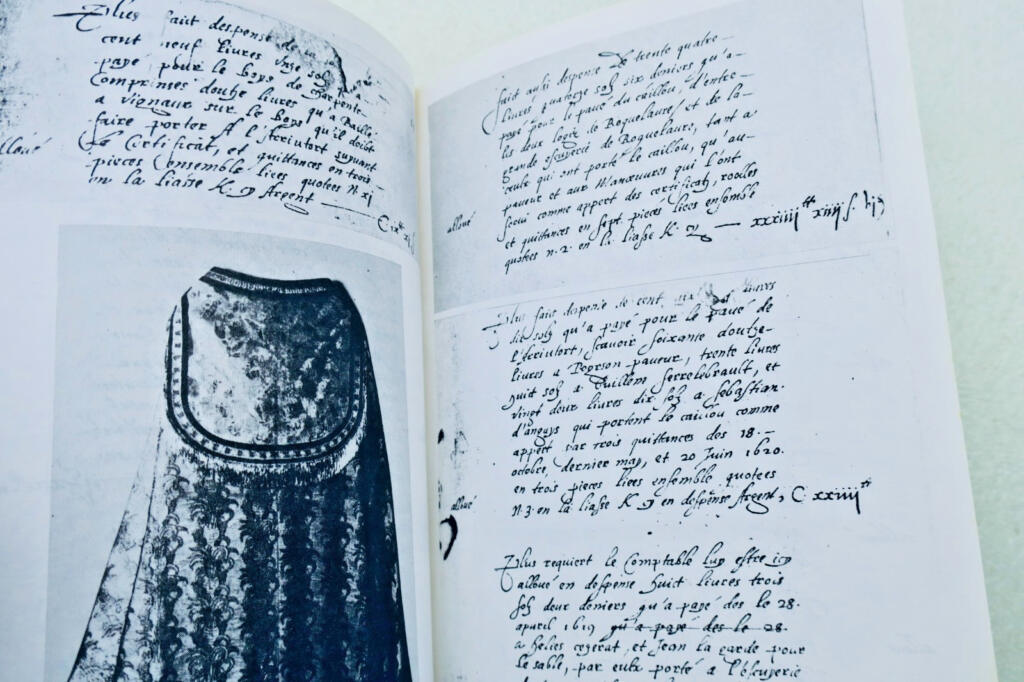 Plus fait despense de
cent neuf livres unze solz
payé pour le boys de charpente
Comprinses douhe livres qu'a Baillé
a vignaux sur le boys qu'il doibt
faire porter A l'escriutort suyuant
Le Certificat, et quittances en trois
pieces Ensemble liees quotees N. xj
en la liasse K. Argent
alloué
fait aussi despense De trente quatre
livres quatorze solz six deniers qu'a
payé pour le pavé du caillou, d'entre
les deux logiz de Roquelaure et de la
grande escuyerie de Roquelaure, tant a
ceulx qui ont porté le caillou, qu'au
paveur et aux Manœuvres qui l'ont
servi comme appert des certificatz, roolles
et quittances en sept pieces liees ensemble
quotees n. 2. en la liasse K. xxxiiij tt xiiij s. vj d
alloué
Plus fait despense de cent livres
dix solz qu'a payé pour le pavé de
l'escriutort, scavoir soixante douhe
livres a paveur, trente livres
huit solz a Guillem Serrelebrault, et
vingt deux livres dix solz a Sebastian
d'angays qui portent le caillou comme
appert par trois quittances des 18.
octobre, dernier may, et 20 Juin 1620.
en trois pieces liees ensemble quotees
N. 3. en la liasse K en despense Argent, C xxiiij tt
alloué
Plus requiert le Comptable luy estre icy
alloué en despense huit livres trois
solz deux deniers qu'a payé des le 28.
apvril 1619 qu'a payé des le 28.
a helies et Jean la garde pour
le sable, par eulx porté a l'escuyerie